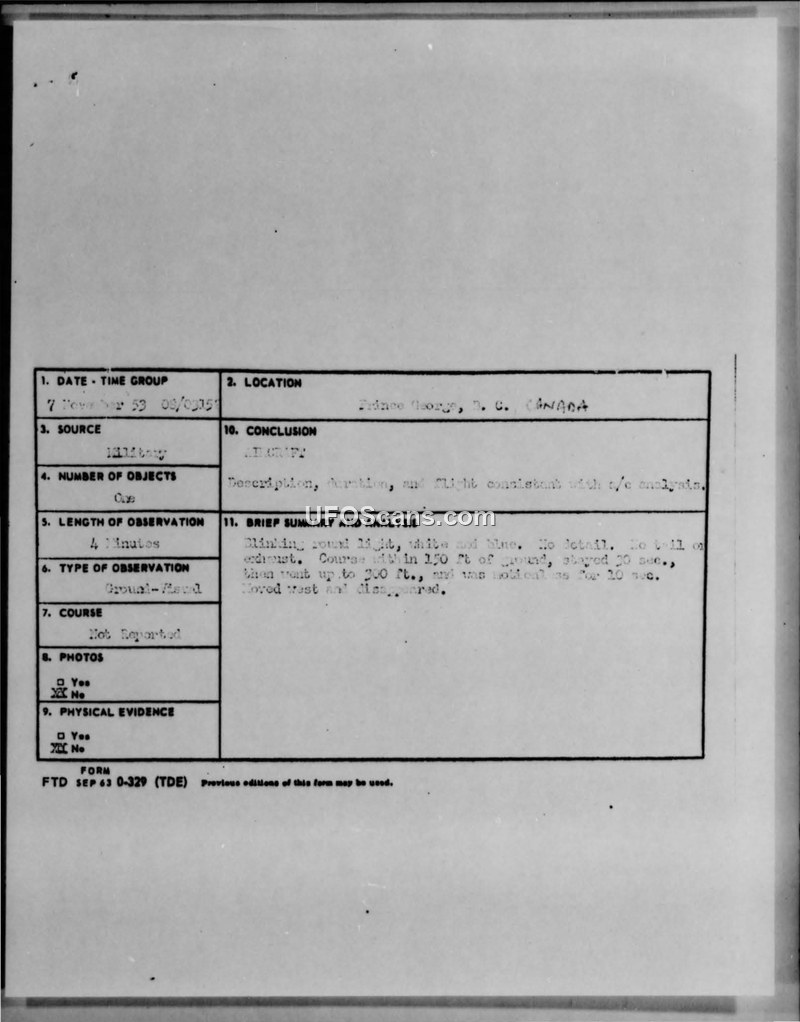 1. DATE - TIME GROUP
7 November 53
2. LOCATION
Prince George, B. C. CANADA
3. SOURCE
Military
10. CONCLUSION
AIRCRAFT
Description, duration, and flight consistant with a/c analysis.
4. NUMBER OF OBJECTS
One
5. LENGTH OF OBSERVATION
4 Minutes
11. BRIEF SUMMARY AND ANALYSIS
Blinking round light, white and blue. No detail. No tail or
exhaust. Course within 150 ft of ground, stayed 30 sec.,
then went up to 300 ft., and was for 10 sec.
Moved west and disappeared.
6. TYPE OF OBSERVATION
Ground-Visual
7. COURSE
Not Reported
8. PHOTOS
□ Yes
XX No
9. PHYSICAL EVIDENCE
□ Yes
XX No
FORM
FTD SEP 63 0-329 (TDE) Previous editions of this form may be used.
UFOScans.com